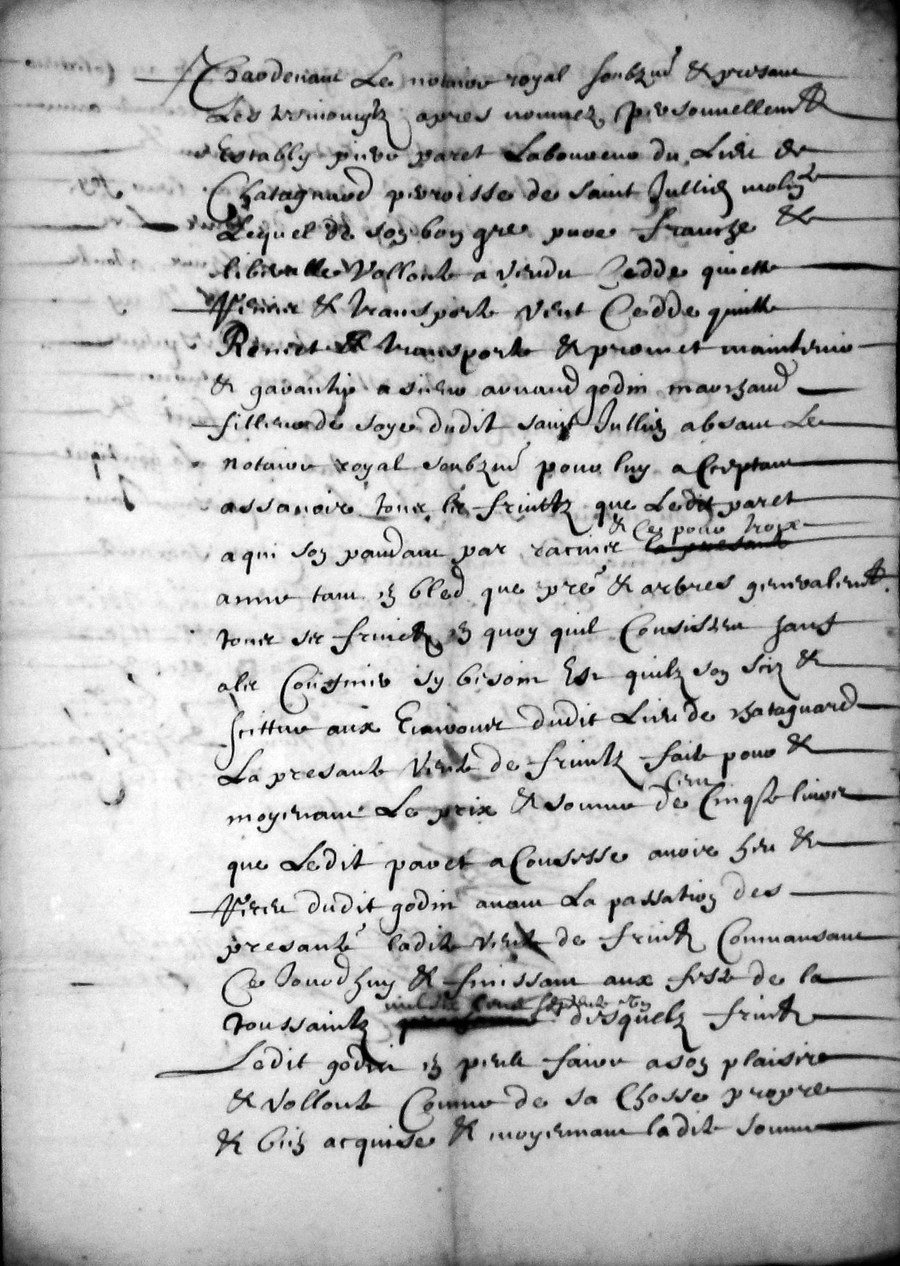 Pardevant Le notaire royal soubzné & presant
Les tesmoingtz apres nommez personnellemt
Estably pierre paret Laboureur du Lieu de
Chatagnard perroisse de saint Jullien molin
Lequel de son bon gre pure franche &
liberalle Vollonte a vendu Cedde quitte
& transporte vent Cedde quitte
Remet & transporte & promet maintenir
& garantir a sieur arnaud godin marchand
de soye dudit saint Jullien absant Le
notaire royal soubzné pour luy acceptant
assavoir tous les fruictz que Ledit paret
a qui son pandant par racines & Ces pour trois
annee tant en bled que pré & arbres generalemt
tous ses fruictz en quoy quil Consistent sans
Confiner sy besoin Est quilz son &
scittue aux dudit Lieu de chatagnard
La presante Vente de fruictz faite pour &
moyenant Le prix & somme de Cent Cinqte livres
que Ledit paret a Confesse avoir heu &
Receu dudit godin avant La passation des
presante ladite vente de fruictz Commansant
Ce Jourdhuy & finissant aux feste de la
toussaintz mil six cent septente desquelz fruictz
Ledit godin en peult faire a son plaisire
& Vollonte Comme de sa Chosse propre
& bien acquise & moyennant ladite somme